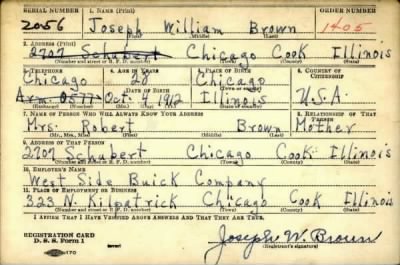 SERIAL NUMBER 1. NAME (Print) ORDER NUMBER
2056 Joseph William Brown 1405
(First) (Middle) (Last)
2. ADDRESS (Print)
2707 Schubert Chicago Cook Illinois
(Number and street or R. F. D. number) (Town) (County) (State)
3. TELEPHONE 4. AGE IN YEARS 5. PLACE OF BIRTH 6. COUNTRY OF CITIZENSHIP
Chicago 28 Chicago
DATE OF BIRTH (Town or county)
Arm. 0577 Oct. 4 1912 Illinois U.S.A.
(Exchange) (Number) (Mo.) (Day) (Yr.) (State or country)
7. NAME OF PERSON WHO WILL ALWAYS KNOW YOUR ADDRESS 8. RELATIONSHIP OF THAT PERSON
Mrs. Robert Brown Mother
(Mr., Mrs., Miss) (First) (Middle) (Last)
9. ADDRESS OF THAT PERSON
2707 Schubert Chicago Cook Illinois
(Number and street or R. F. D. number) (Town) (County) (State)
10. EMPLOYER'S NAME
West Side Buick Company
11. PLACE OF EMPLOYMENT OR BUSINESS
323 N. Kilpatrick Chicago Cook Illinois
(Number and street or R. F. D. number) (Town) (County) (State)
I AFFIRM THAT I HAVE VERIFIED ABOVE ANSWERS AND THAT THEY ARE TRUE.
REGISTRATION CARD
D. S. S. Form 1 (over) Joseph W. Brown
(Registrant's signature)